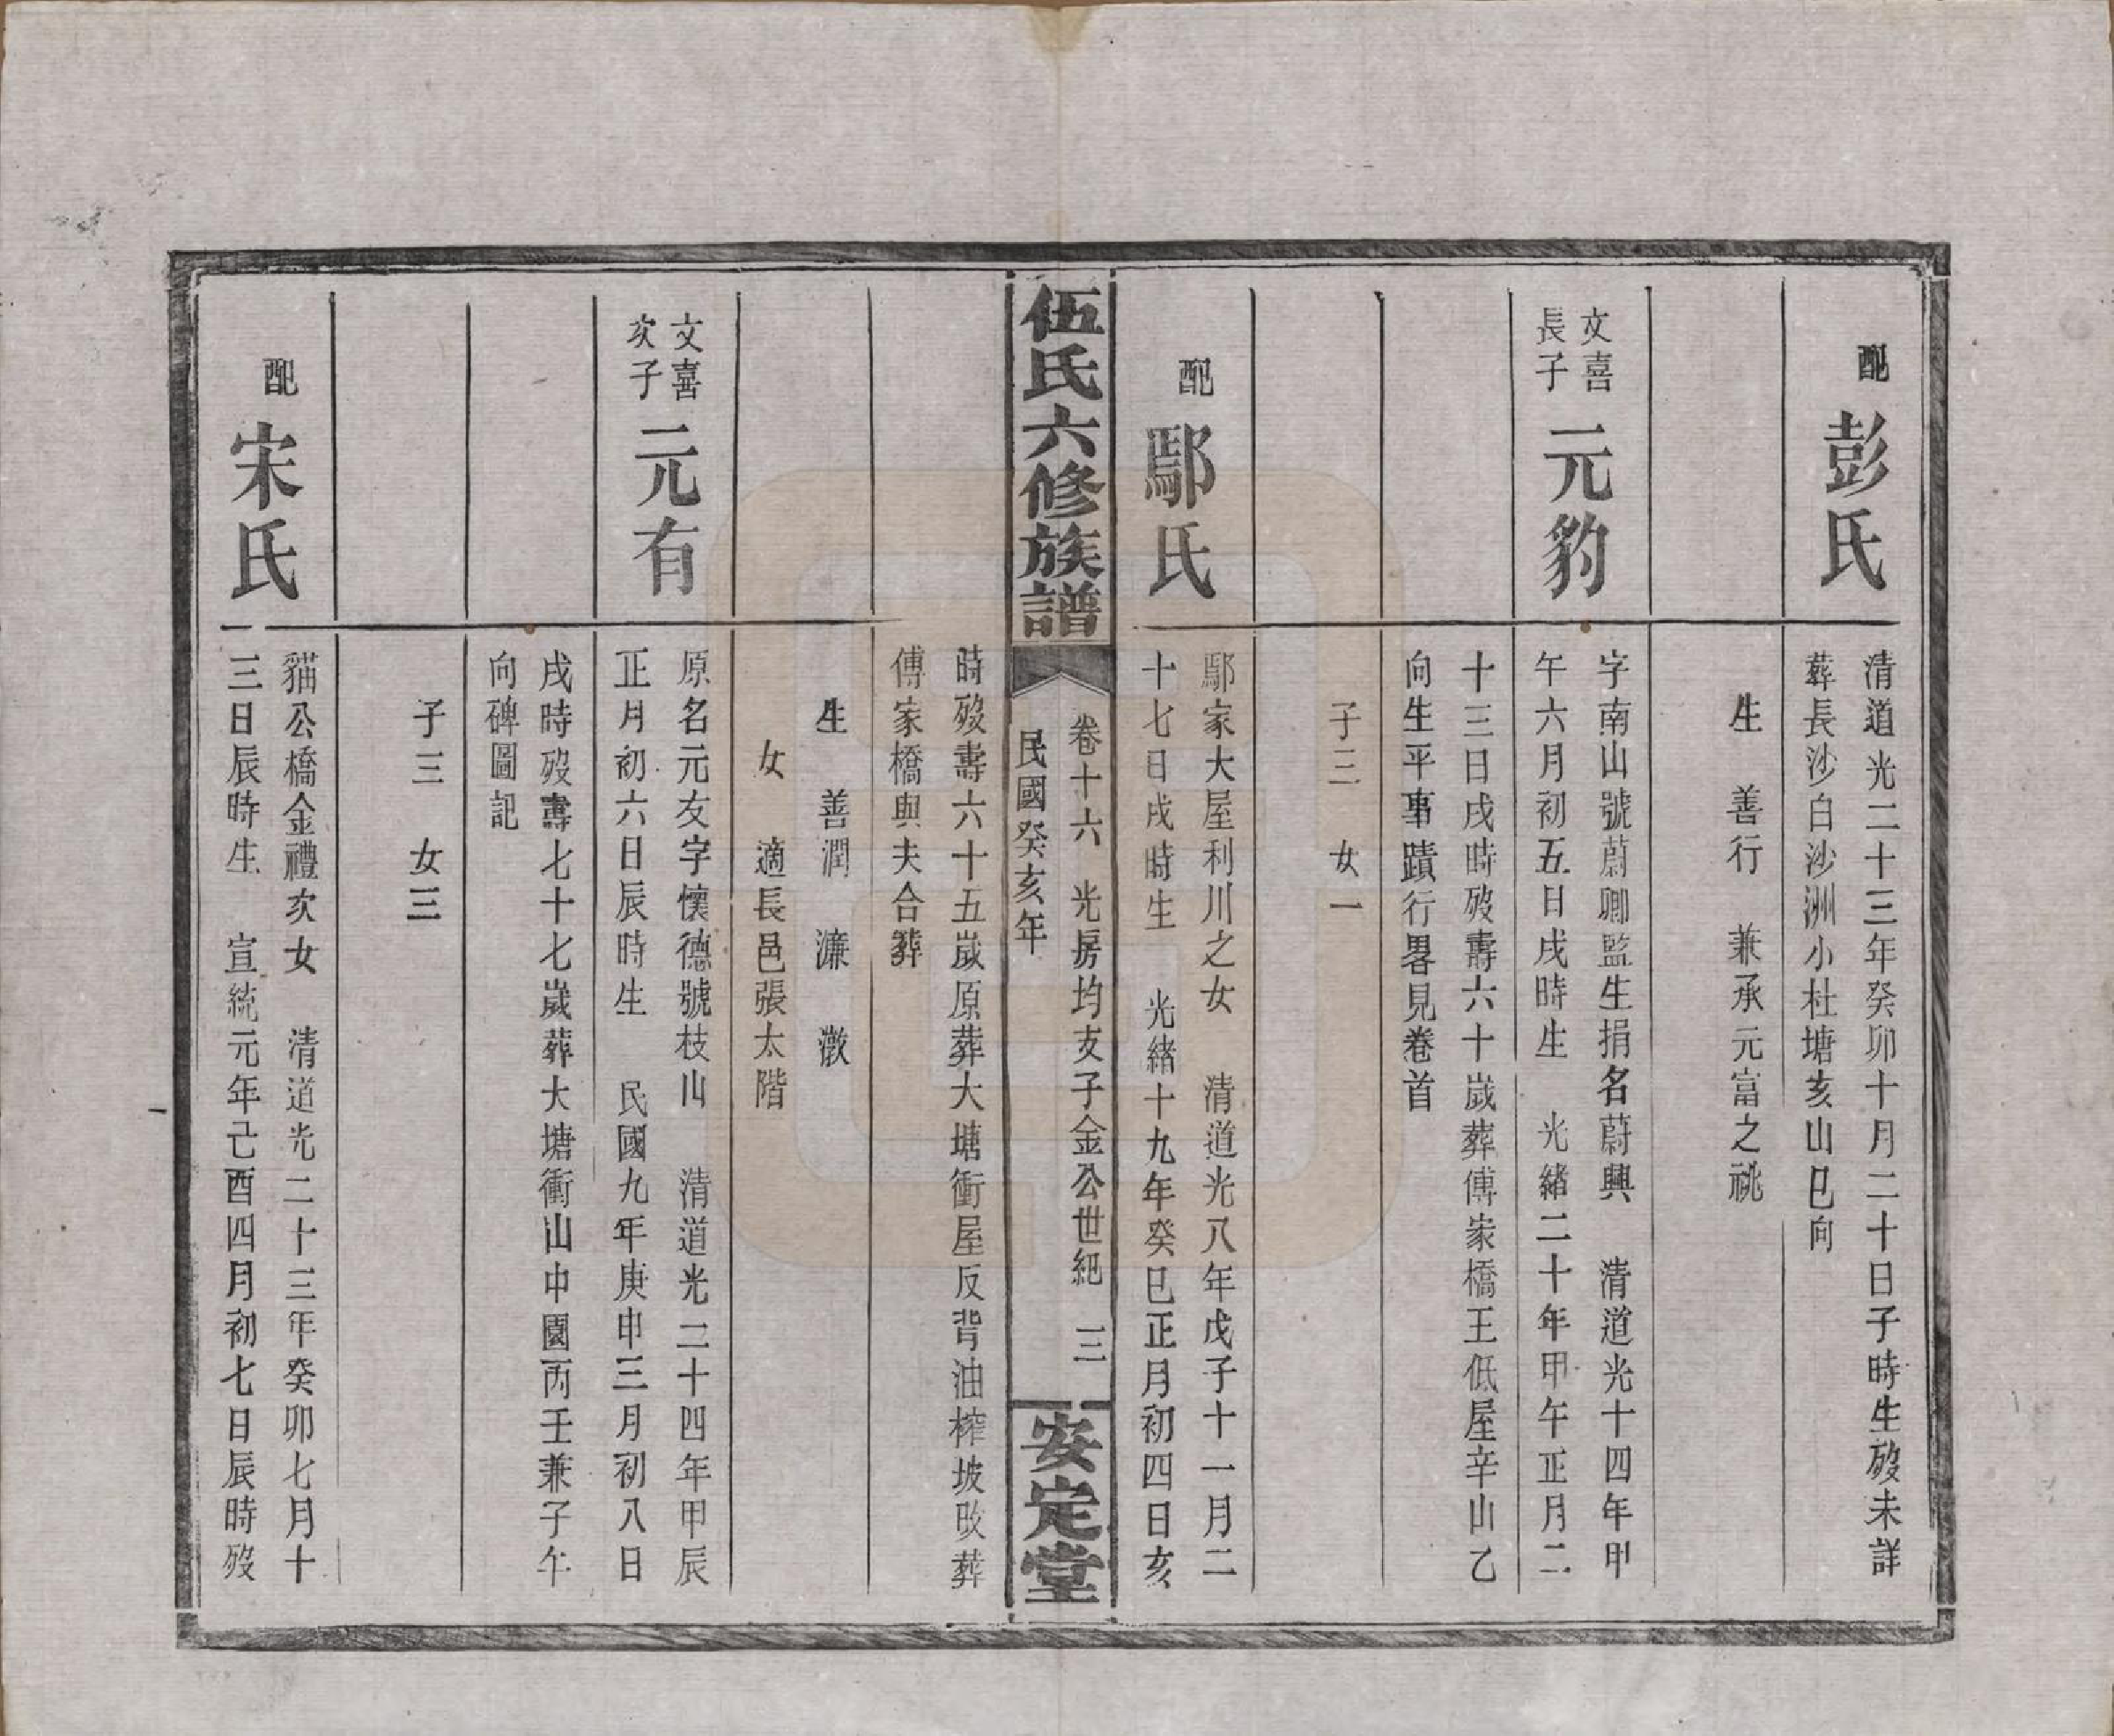 配
彭氏
清道光二十三年癸卯十月二十日子時生歿未詳
葬長沙白沙洲小杜塘亥山巳向
生　善行　兼承元富之祧
文喜
長子
元豹
字南山號蔚卿監生捐名蔚興　清道光十四年甲
午六月初五日戌時生　光緒二十年甲午正月二
十三日戌時歿壽六十歲葬傅家橋王低屋辛山乙
向生平事蹟行畧見卷首
子三　女一
配
鄢氏
鄢家大屋利川之女　清道光八年戊子十一月二
十七日戌時生　光緒十九年癸巳正月初四日亥
伍氏六修族譜
卷十六　光房均支子金公世紀　三
民國癸亥年
安定堂
時歿壽六十五歲原葬大塘衝屋反背油榨坡改葬
傅家橋與夫合葬
生　善潤　濂　澂
女　適長邑張太階
文喜
次子
元有
原名元友字懷德號枝山　清道光二十四年甲辰
正月初六日辰時生　民國九年庚申三月初八日
戌時歿壽七十七歲葬大塘衝山中園丙壬兼子午
向碑圖記
子三　女三
配
宋氏
貓公橋金禮次女　清道光二十三年癸卯七月十
三日辰時生　宣統元年己酉四月初七日辰時歿